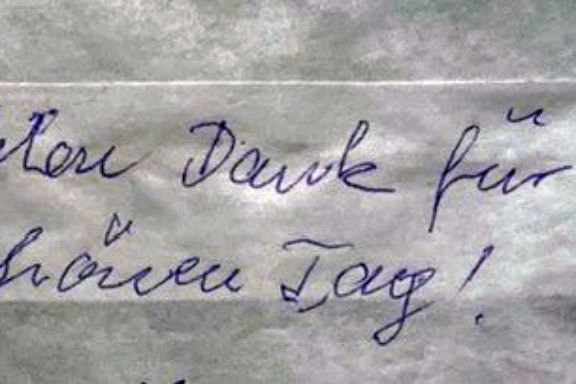 elen Dank für
hönen Tag!